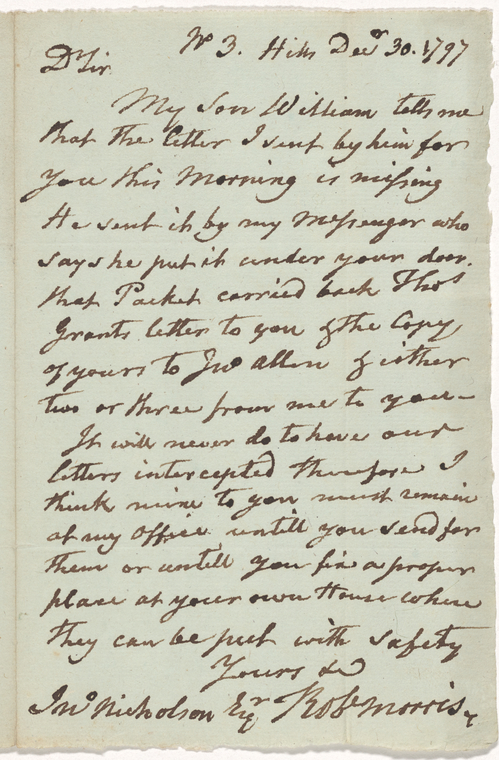 No 3. Hills Decr 30. 1797
Dr Sir
My Son William tells me
that the letter I sent by him for
you this Morning is missing
He sent it by my Messenger who
says he put it under your door.
that Packet carried back Thos
Grants letter to you & the Copy
of yours to Jno Allen & either
two or three from me to you —
It will never do to have our
letters intercepted therefore I
think mine to you must remain
at my Office untill you send for
them or untill you fix a proper
place at your own House where
they can be put with safety
Yours &c
Jno Nicholson Esqr Robt Morris